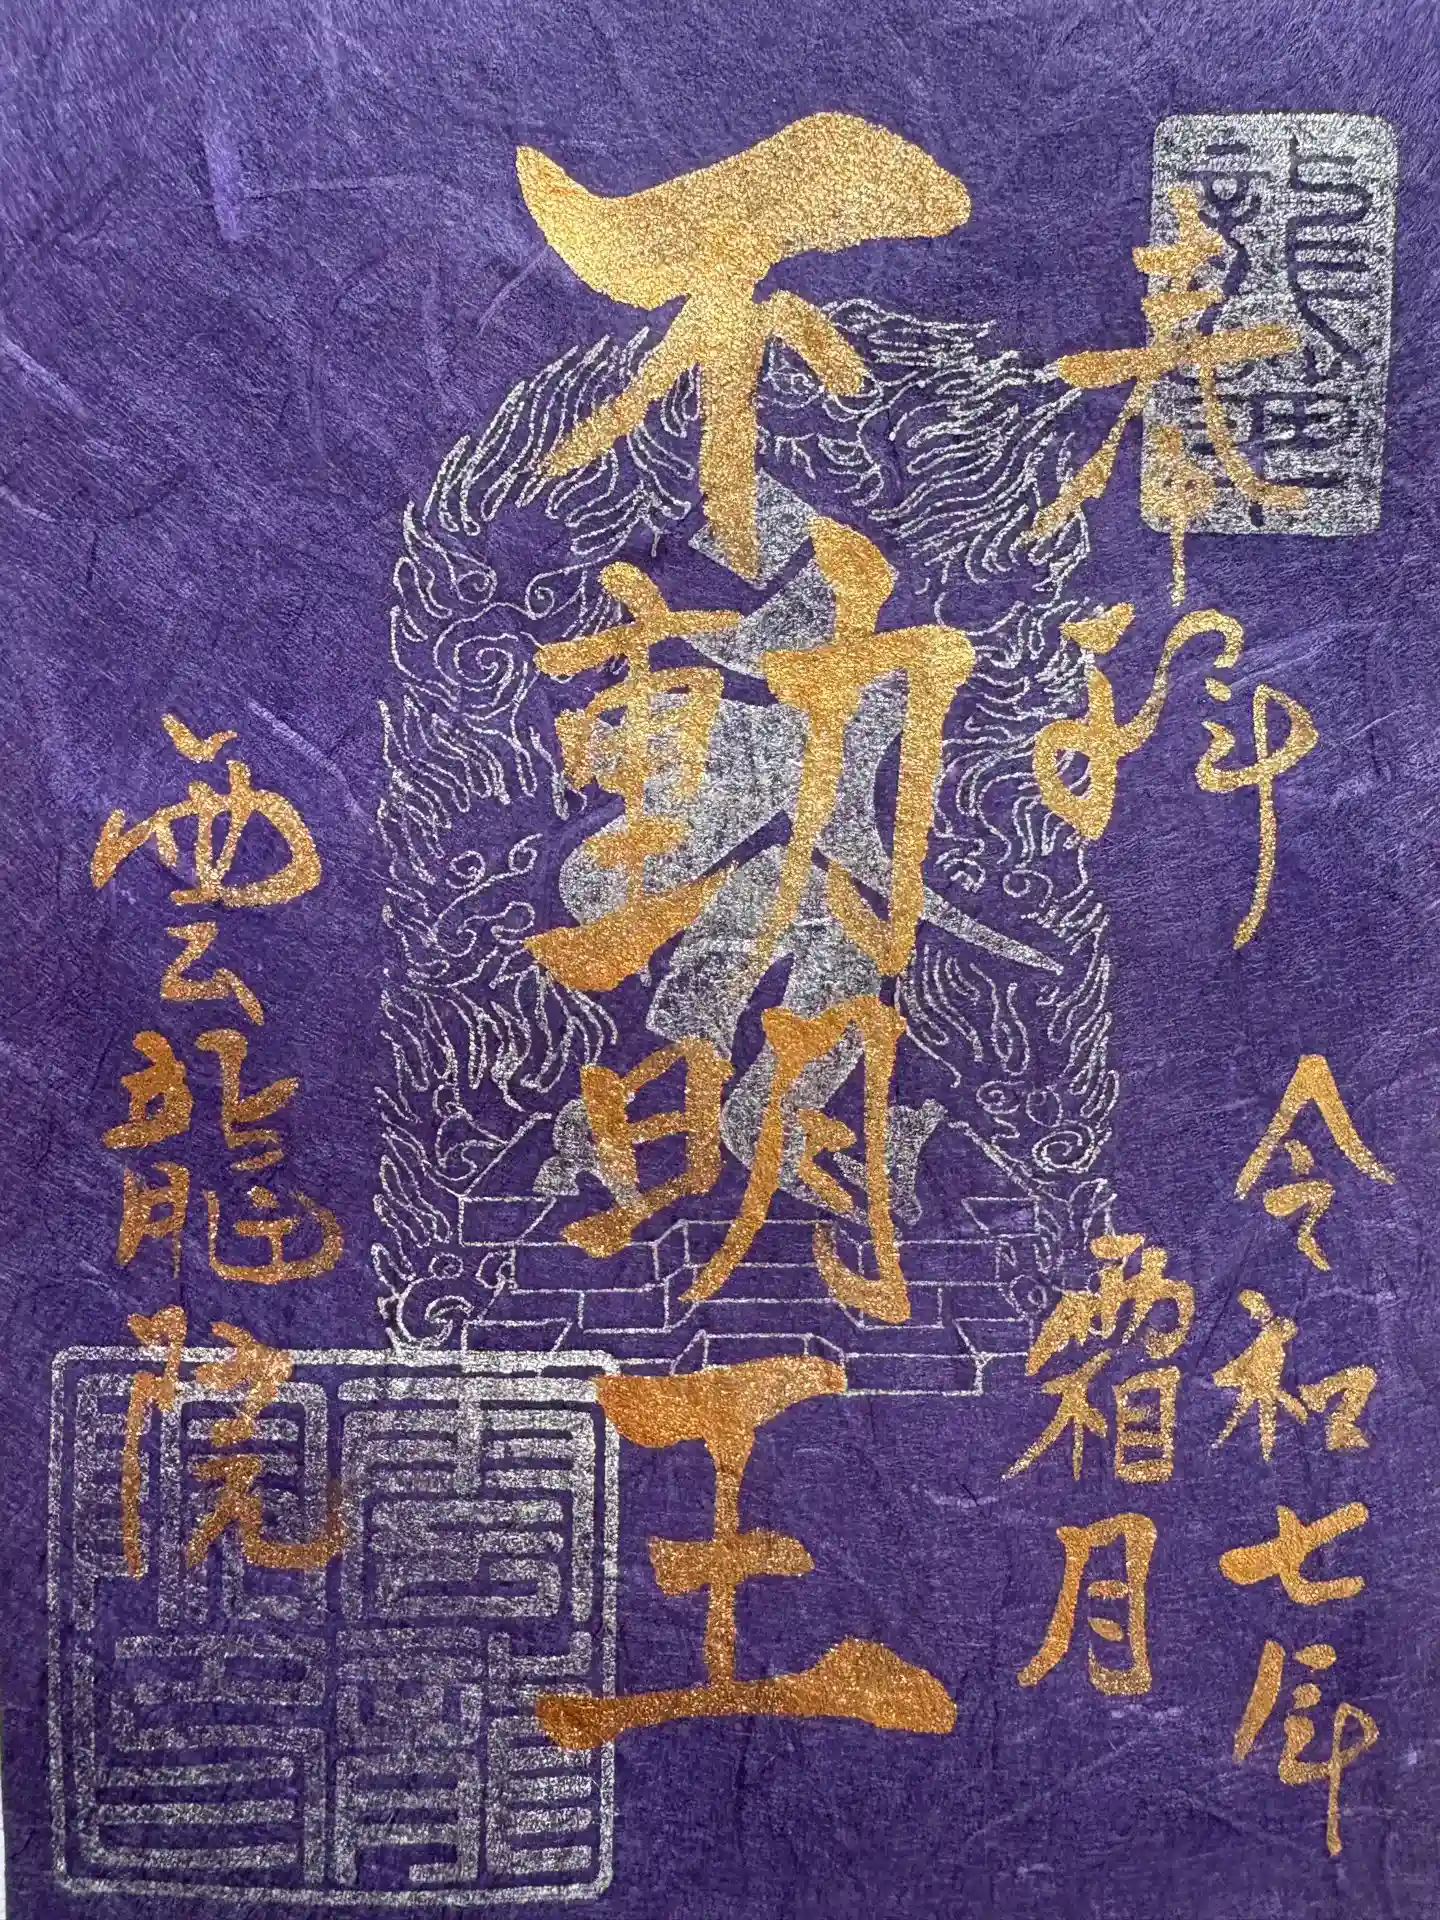 奉拝
令和七年
霜月
不動明王
雲龍院